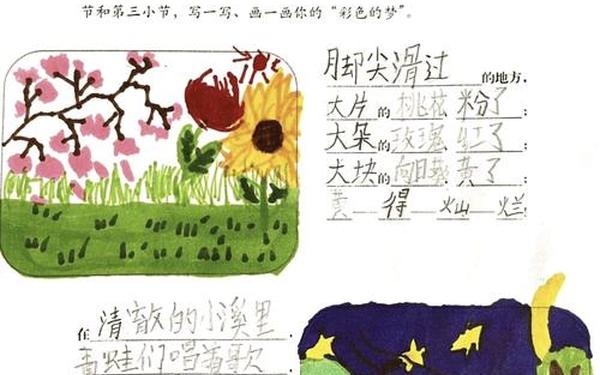 节和第三小节，写一写、画一画你的“彩色的梦”。
脚尖滑过的地方，
大片的桃花粉了；
大朵的玫瑰红了；
大块的向日葵黄了；
黄得灿烂！
在清澈的小溪里，
青蛙们唱着歌